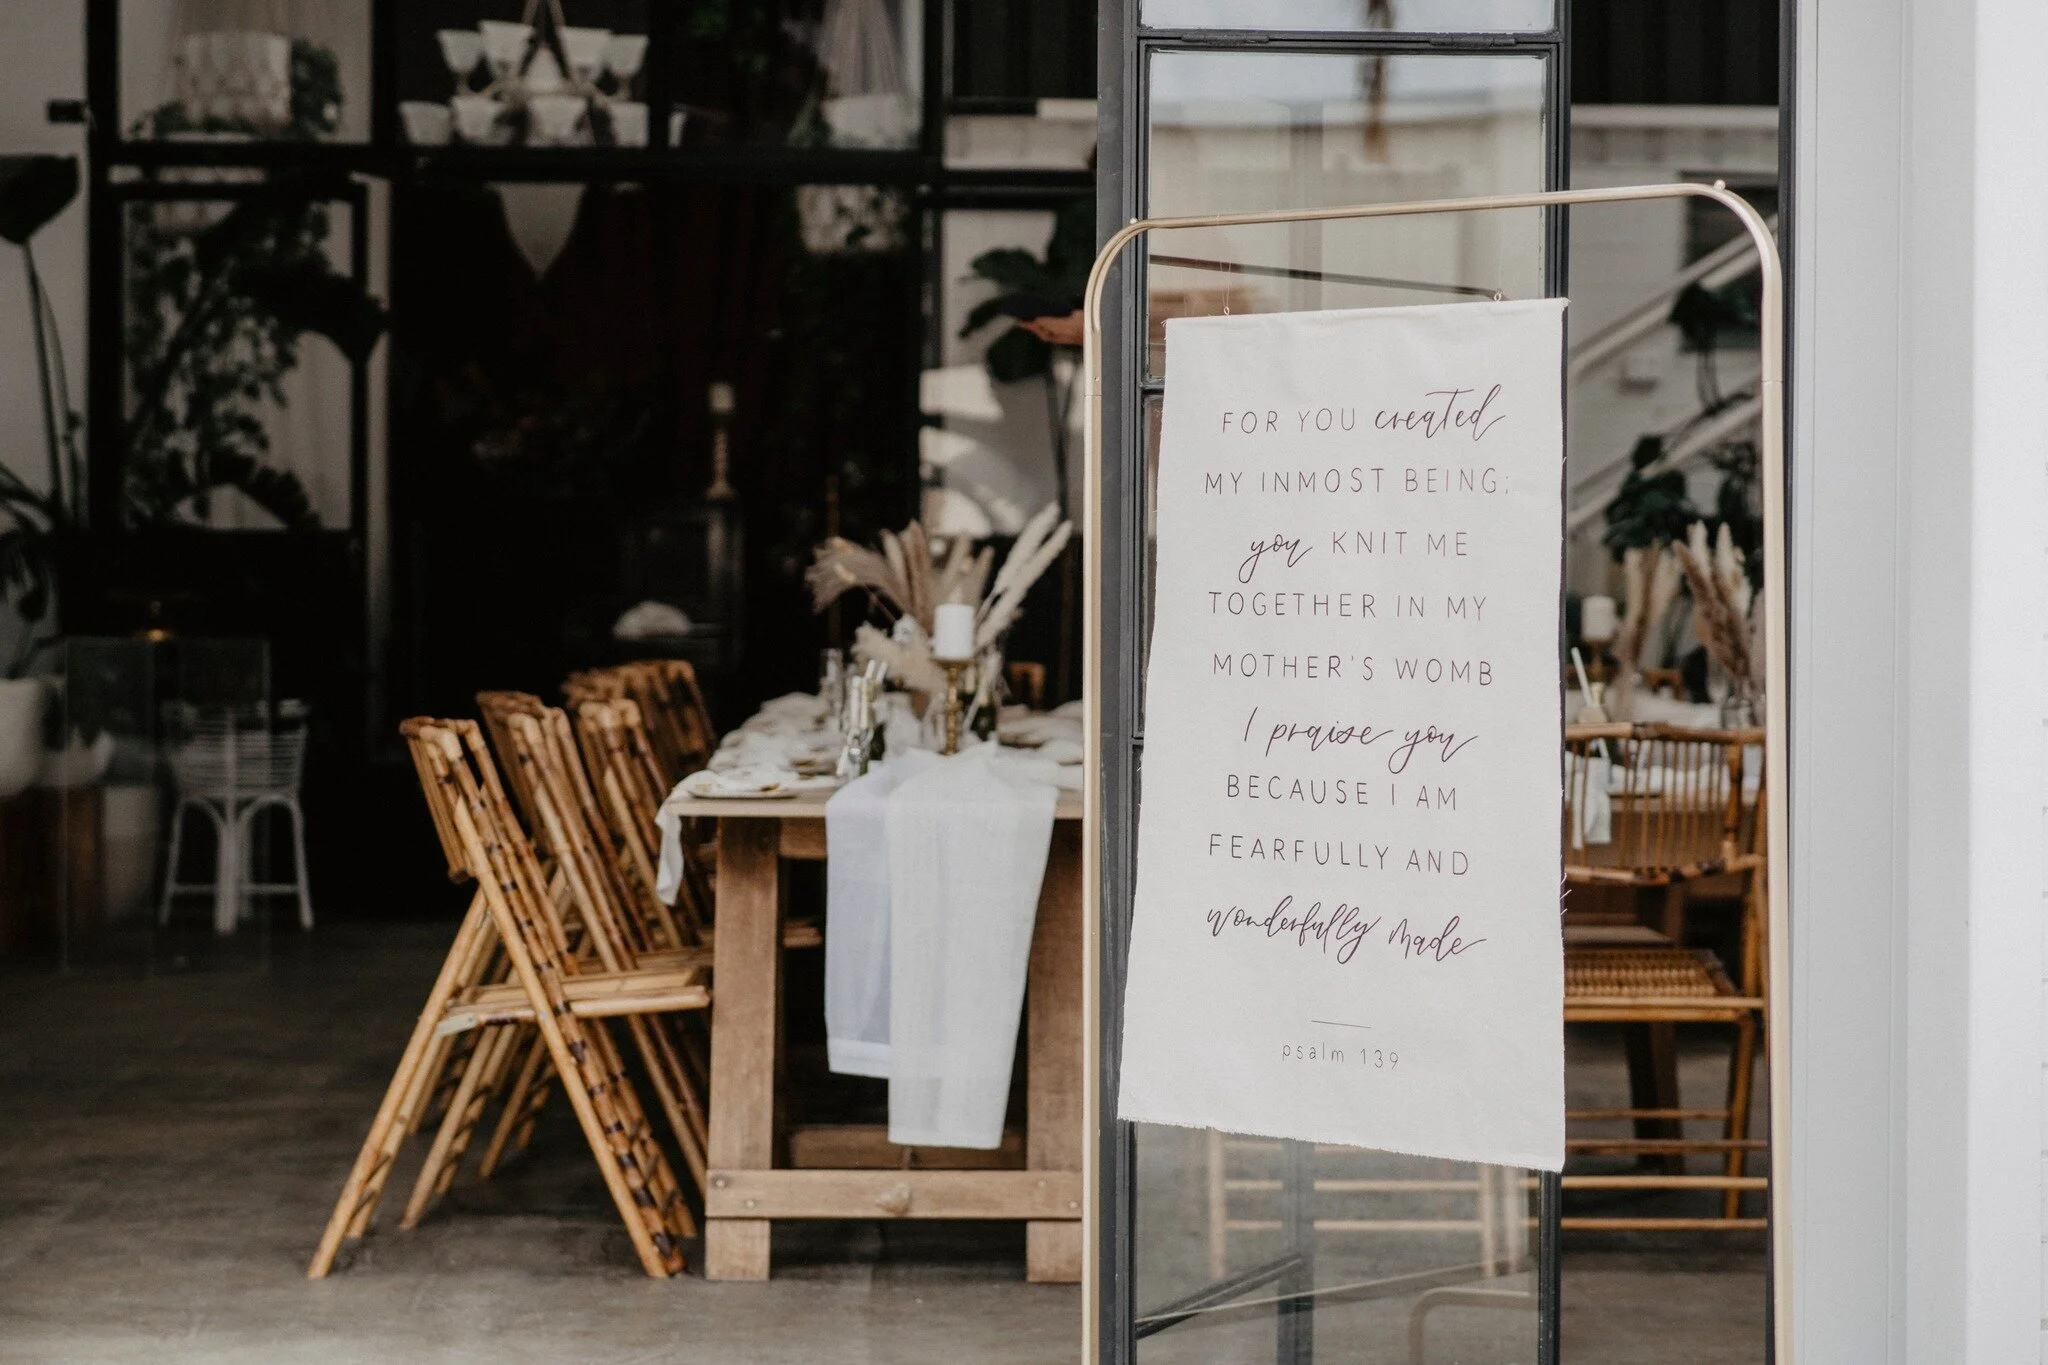 FOR YOU created
MY INMOST BEING;
you KNIT ME
TOGETHER IN MY
MOTHER'S WOMB
I praise you
BECAUSE I AM
FEARFULLY AND
wonderfully made
psalm 139